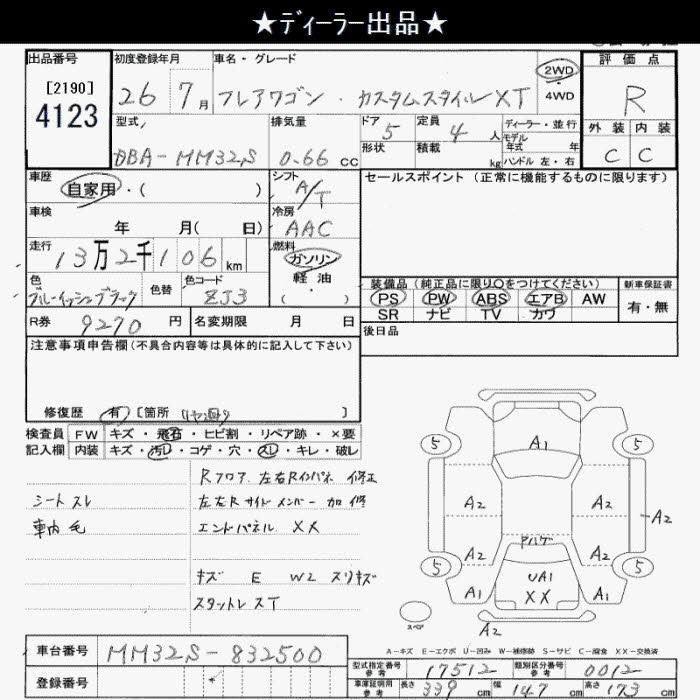 ★ディーラー出品★
出品番号
[2190]
4123
初度登録年月
26 7月
車名・グレード
フレアワゴン・カスタムスタイルXT
2WD
4WD
評価点
R
外装 内装
C C
型式
DBA-MM32S
排気量
0.66 CC
ドア
5
定員
4人
形状
積載
kg
ディーラー・並行
モデル年式 年
ハンドル 左・右
車歴
自家用・( )
シフト
A/T
車検
年 月( 日)
冷房
AAC
走行
13万2千106km
燃料
ガソリン
軽油
( ・ )
色
ブルーイッシュブラック
色替
色コード
ZJ3
セールスポイント (正常に機能するものに限ります)
装備品 (純正品に限り○をつけてください)
PS PW ABS エアB AW
SR ナビ TV カワ
新車保証書
有・無
R券 9270 円
名変期限 月 日
後日品
注意事項申告欄(不具合内容等は具体的に記入して下さい)
修復歴 有 [箇所 ]
検査員記入欄
FW キズ・飛石・ヒビ割・リペア跡・×要
内装 キズ・汚レ・コゲ・穴・スレ・キレ・破レ
シートスレ
車内毛
Rフロア 左右Rインパネ 修正
左右Rサイドメンバー 加修
エンドパネル XX
キズ E W2 スリキズ
スタットレスT
A1
5 5
A2 A2
A2
A2 A2
アハゲ
5 5
UA1
XX
A1 A1
A2
スペア
A-キズ E-エクボ U-凹み W-補修跡 S-サビ C-腐食 XX-交換済
車台番号 MM32S-832500
登録番号
型式指定番号 参考 17512
類別区分番号 参考 0012
車庫証明用 参考 長さ 339 cm 幅 147 cm 高さ 173 cm